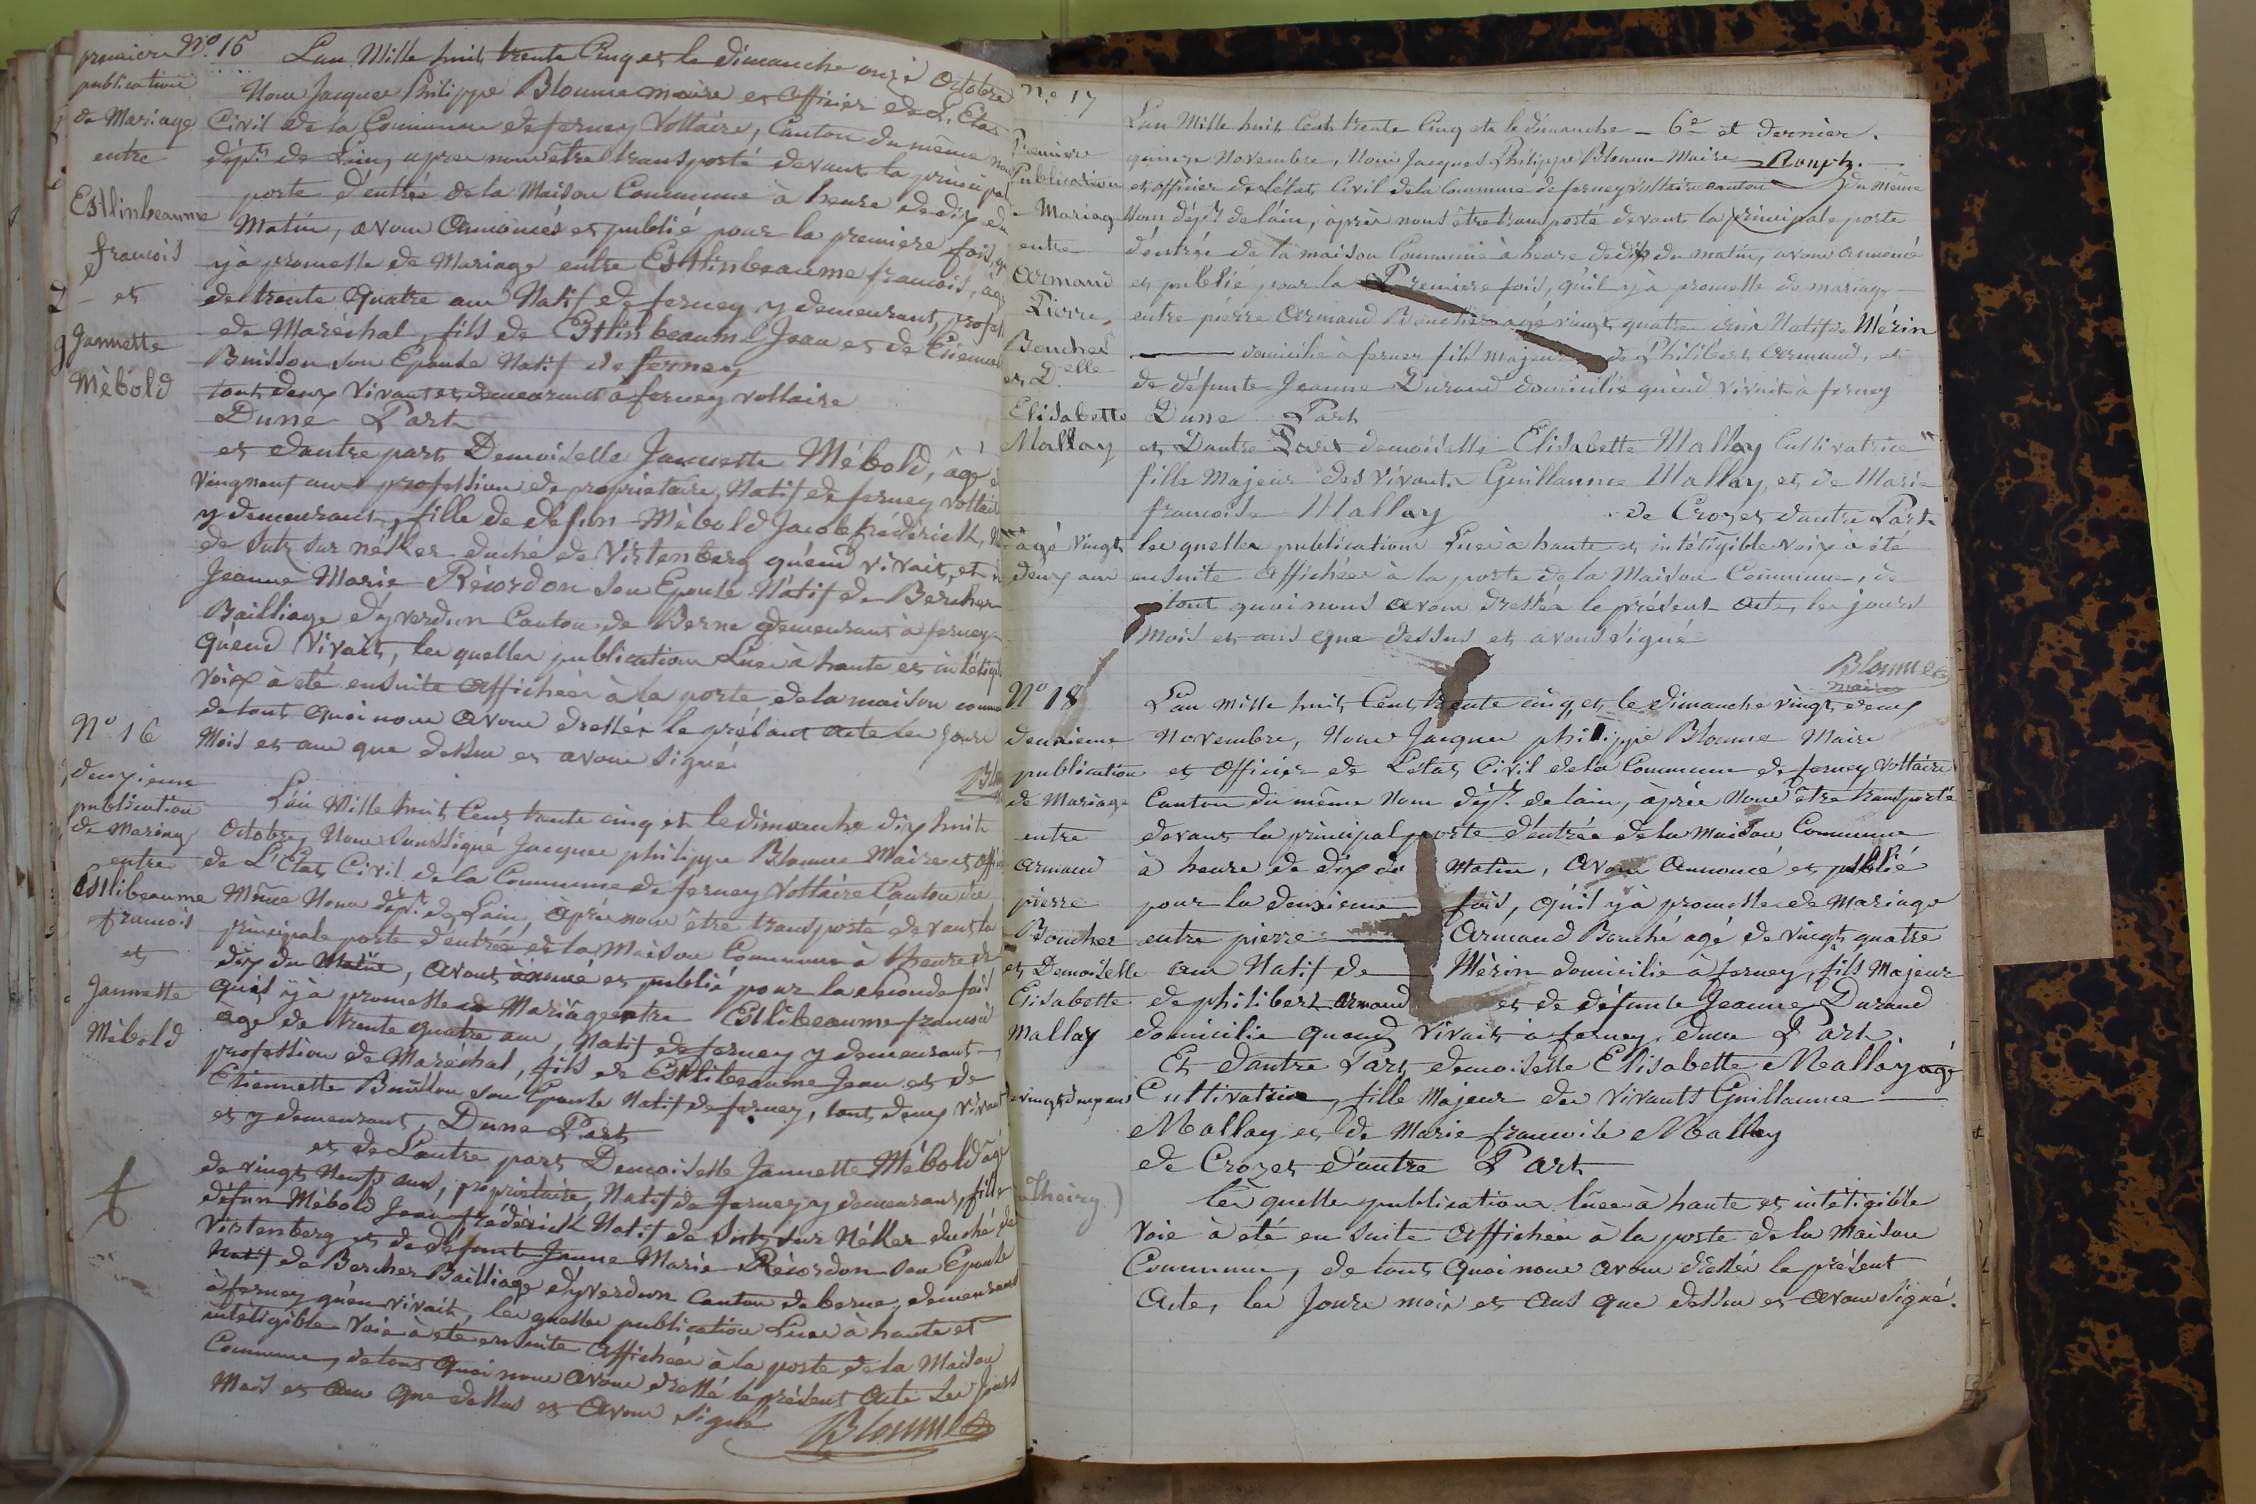 premiere
publication
de Mariage
entre
Estlinbeaume
francois
et
Jannette
Mèbold
N.º 15
L'an Mille huit trente Cinq et le dimanche onze Octobre
Nous Jacques Philippe Bloume maire et officier de L'Etat
Civil de la Commune de ferney Voltaire, Canton du même
dépt. de L'ain, apres nous être transporté devant la principal
porte d'entrée de la Maison Commune à heure de dix du
Matin, avons Annoncés et publié pour la premiere fois,
y à promesse de Mariage entre Estlinbeaume francois, âgé
de trente quatre ans Natif de ferney y demeurant,
de Maréchal, fils de Estlinbeaume Jean et de
Buisson son Epouse Natif de ferney
tout deux Vivant et demeurant a ferney voltaire
Dune Part
et dautre part Demoiselle Jannette Mébold, âgé
Vingneuf ans profession de propriétaire, Natif de ferney Voltaire
y demeurant, fille de défun Mèbold Jacob frédérick,
de Sutz sur nékker duché de Virtenberg quéend vivait, et
Jeanne Marie Récordon son Epouse Natif de Bercher
Bailliage d'yverdun Canton de Berne demeurant à ferney
quéend Vivait, les quelles publications Lue à haute et
Voix à été ensuite Affichéer à la porte de la maison
de tout quoi nous avons dressér le présant acte les jours
Mois et ans que dessus et avons signé
N.º 16
deuxieme
publication
de Mariag
entre
Estlibeaume
francois
et
Jannette
Mèbold
L'an Mille huit Cent trente cinq et le dimanche dix huit
Octobre, Nous Soussigné Jacques philippe Bloume Maire et
de L'Etat Civil de la Commune de ferney Voltaire Canton du
Même Nom dépt. de L'ain, après nous être transporté devant la
principale porte d'entrée de la Maison Commune à heure de
dix du Matin, avons et publié pour la seconde fois
quil y à promesse de Mariage entre Estlibeaume francois
âge de trente quatre ans, Natif de ferney y demeurant,
profession de Maréchal, fils de Estlibeaume Jean et de
Etiennette Buisson son Epouse Natif de ferney, tout deux vivant
et y demeurant, Dune Part
et de Lautre part Demoiselle Jannette Mébold âgé
de vingt Neuf ans, propriétaire, Natif de ferney y demeurant, fille
défun Mébold Jean frédérick Natif de Sutz sur Nékker duché de
Virtenberg et de défunte Jeanne Marie Récordon son Epouse
Natif de Bercher Bailliage d'yverdun Canton de berne, demeurant
à ferney quéen vivait, les quelles publication Lue à haute et
intétigible Voie à été ensuite Affichéer à la porte de la Maison
Commune, de tout Quoi nous avons dressé le présent acte Les Jours
Mois et Ans que dessus et avons signé
Bloume
N.º 17
Premiere
Publication
Mariag
entre
Armand
Pierre
Boucher
et D.elle
Elisabette
Mallay
L'an Mille huit Cent trente Cinq et le dimanche – 6e et dernier.
quinze Novembre, Nous Jacques Philippe Bloume Maire
et officier de l'état Civil de la Commune de ferney Voltaire canton du même
Nom dépt. de l'ain, après nous être transporté devant la principale porte
d'entrée de la maison Commune à heure de dix du matin, avons Annoncé
et publié, pour la Premiere fois, qu'il y à promesse de mariage
entre pierre Armand Bouché agé vingt quatre ans Natif de Mérin
domicilié à ferney fils majeur de Philibert Armand, et
de défunte Jeanne Durand domicilié quéend vivait à ferney
Dune Part
et Dautre Part demoiselle Elisabette Mallay Cultivatrice
fille Majeur des Vivants Guillaume Mallay, et de Marie
francoise Mallay de Crozet dautre Part
agé Vingt
deux ans
les quelles publications Lue à haute et intétigible voix à été
ensuite Affichéer à la porte de la Maison Commune, de
tout quoi nous avons dressér le présent acte, les jours
mois et ans que dessus et avons signé
Bloume
maire
N.º 18
deuxieme
publication
de Mariage
entre
Armand
pierre
Boucher
et Demoiselle
Elisabette
Mallay
L'an Mille huit Cent trente cinq et le dimanche vingt deux
Novembre, Nous Jacques philippe Bloume Maire
et Officier de L'état Civil de la Commune de ferney Voltaire
Canton du même Nom dépt. de lain, après Nous être transporté
devant la principal porte d'entrée de la Maison Commune
à heure de dix du Matin, avons Annoncé et publié
pour la deuxieme fois, qu'il y à promesse de Mariage
entre pierre Armand Bouché agé de vingt quatre
ans Natif de Mérin domicilié à ferney, fils Majeur
de philibert Armand et de défunte Jeanne Durand
domicilie quend Vivait à ferney, dune Part
Et dautre Part demoiselle Elisabette Mallay agé
vingt deux ans
Cultivatrice, fille Majeur des vivants Guillaume
Mallay et de Marie francoise Mallay
de Crozet d'autre Part
(Thoiry)
les quelles publications lüe à haute et intétigible
Voie à été en suite Affichéer à la porte de la Maison
Commune, de tout Quoi nous avons dressér le présent
Acte, les Jours mois et Ans que dessus et avons signé.